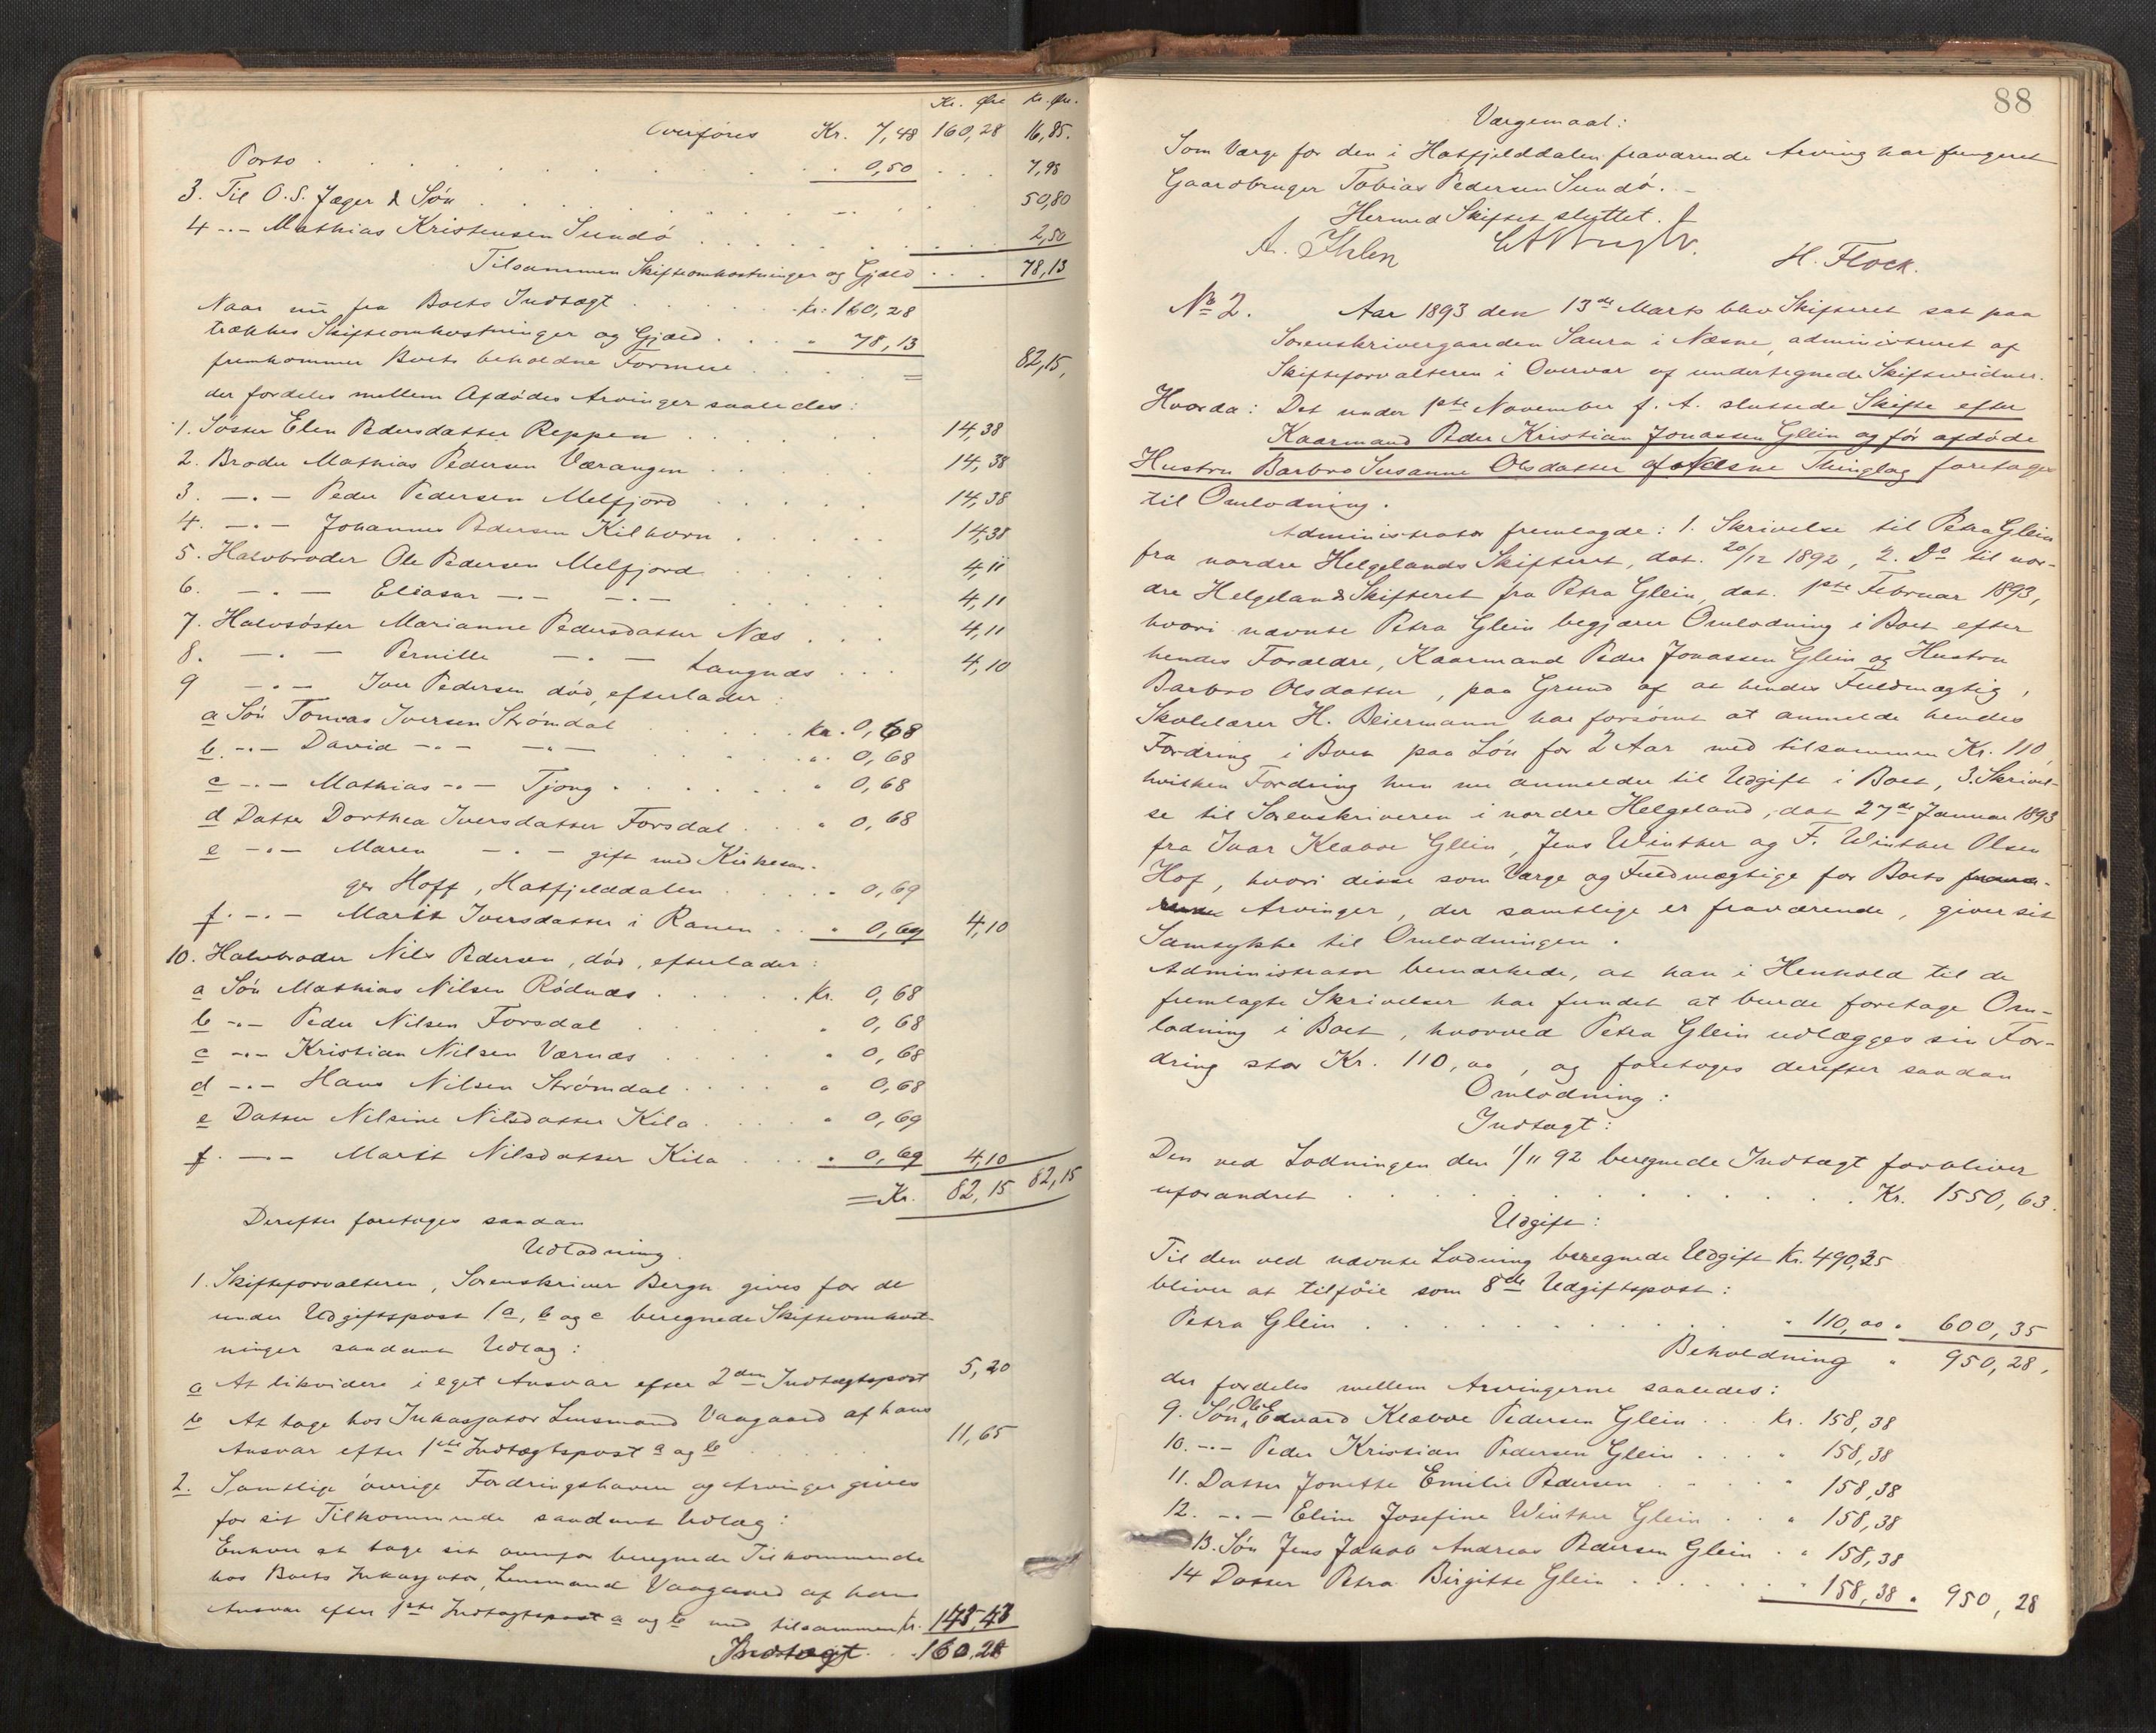 Kr. Øre Kr. Øre.
Overføres Kr. 7,48 160,28 16,85.
Porto . . . 0,50 . . . 7,98
3. Til O. S. Jæger & Søn . . . 50,80
4 -"- Mathias Kristensen Sundö . . . 2,50
Tilsammen Skifteomkostninger og Gjæld . . . 78,13
Naar nu fra Boets Indtægt . . . Kr. 160,28
trækkes Skifteomkostninger og Gjæld . . . " 78,13
fremkommer Boets beholdne Formue . . . = 82,15,
der fordeles mellem Afdödes Arvinger saaledes:
1. Söster Elen Pedersdatter Reppen . . . 14,38
2. Broder Mathias Pedersen Værangen . . . 14,38
3. -"- Peder Pedersen Melfjord . . . 14,38
4. -"- Johannes Pedersen Kilhorn . . . 14,38
5. Halvbroder Ole Pedersen Melfjord . . . 4,11
6. -"- Eliasar -"- -"- . . . 4,11
7. Halvsöster Marianne Pedersdatter Næs . . . 4,11
8. -"- Pernille -"- Langnes . . . 4,10
9 -"- Iver Pedersen död, efterlader:
a Sön Tomas Iversen Strömdal . . . Kr. 0,68
b. -"- David -"- -"- . . . " 0,68
c -"- Mathias -"- Tjong . . . " 0,68
d Datter Dorthea Iversdatter Forsdal . . . " 0,68
e -"- Maren -"- gift med Kirkesan-
ger Hoff, Hatfjelddalen . . . " 0,69
f. -"- Marit Iversdatter i Ranen . . . " 0,69 4,10
10. Halvbroder Nils Pedersen, död, efterlader:
a Sön Mathias Nilsen Rödnæs . . . Kr. 0,68
b -"- Peder Nilsen Forsdal . . . " 0,68
c -"- Kristian Nilsen Værnæs . . . " 0,68
d -"- Hans Nilsen Strömdal . . . " 0,68
e Datter Nilsine Nilsdatter Kila . . . " 0,69
f. -"- Marit Nilsdatter Kila . . . " 0,69 4,10
= Kr. 82,15 82,15
Derefter foretages saadan
Udlodning.
1. Skifteforvalteren, Sorenskriver Bergh gives for de
under Udgiftspost 1 a, b og c beregnede Skifteomkost-
ninger saadant Udlæg:
a At likvidere i eget Ansvar efter 2den Indtægtspost 5,20
b At tage hos Inkassator Lensmand Vaagaard af hans
Ansvar efter 1ste Indtægtspost a og b . . . 11,65
2. Samtlige övrige Fordringshavere og Arvinger gives
for sit Tilkommende saadant Udlæg:
Enhver at tage sit ovenfor beregnede Tilkommende
hos Boets Inkassator, Lensmand Vaagaard af hans
Ansvar efter 1ste Indtægtspost a og b med tilsammen Kr. 143,43
Indtægt . . . 160,28
88
Værgemaal:
Som Værge for den i Hatfjelddalen fraværende Arving har fungeret
Gaardbruger Tobias Pedersen Sundö. -
Hermed Skiftet sluttet.
A. Ihlen H. Flock.
No 2. Aar 1893 den 13de Marts blev Skifteret sat paa
Sorenskrivergaarden Saura i Næsne, administreret af
Skifteforvalteren i Overvær af undertegnede Skiftevidner.
Hvorda: Det under 1ste November f. A. sluttede Skifte efter
Kaarmand Peder Kristian Jonassen Glein og för afdöde
Hustru Barbro Susanne Olsdatter af Næsne Thinglag foretages
til Omlodning.
Administrator fremlagde: 1. Skrivelse til Petra Glein
fra nordre Helgelands Skifteret, dat. 20/12 1892, 2. Do til nor-
dre Helgelands Skifteret fra Petra Glein, dat. 1ste Februar 1893,
hvori nævnte Petra Glein begjærer Omlodning i Boet efter
hendes Forældre, Kaarmand Peder Jonassen Glein og Hustru
Barbro Olsdatter, paa Grund af at hendes Fuldmægtig,
Skolelærer H. Beiermann har forsömt at anmelde hendes
Fordring i Boet paa Lön for 2 Aar med tilsammen Kr. 110,
hvilken Fordring hun nu anmelder til Udgift i Boet, 3. Skrivel-
se til Sorenskriveren i nordre Helgeland, dat. 27de Januar 1893
fra Ivar Klæboe Glein, Jens Winther og F. Winther Olsen
Hof, hvori disse som Værge og Fuldmægtige for Boets fravæ-
rende Arvinger, der samtlige er fraværende, giver sit
Samtykke til Omlodningen.
Administrator bemærkede, at han i Henhold til de
fremlagte Skrivelser har fundet at burde foretage Om-
lodning i Boet, hvorved Petra Glein udlægges sin For-
dring stor Kr. 110,00, og foretages derefter saadan
Omlodning:
Indtægt:
Den ved Lodningen den 1/11 92 beregnede Indtægt forbliver
uforandret . . . Kr. 1550,63.
Udgift:
Til den ved nævnte Lodning beregnede Udgift Kr. 490,35
bliver at tilföie som 8de Udgiftspost:
Petra Glein . . . " 110,00 " 600,35
Beholdning " 950,28,
der fordeles mellem Arvingerne saaledes:
9. Sön Ole Edvard Klæboe Pedersen Glein . . . Kr. 158,38
10. -"- Peder Kristian Pedersen Glein . . . " 158,38
11. Datter Jonette Emilie Pedersen . . . " 158,38
12. -"- Eline Josefine Winther Glein . . . " 158,38
13. Sön Jens Jakob Andreas Pedersen Glein . . " 158,38
14 Datter Petra Birgitte Glein . . . " 158,38 " 950,28